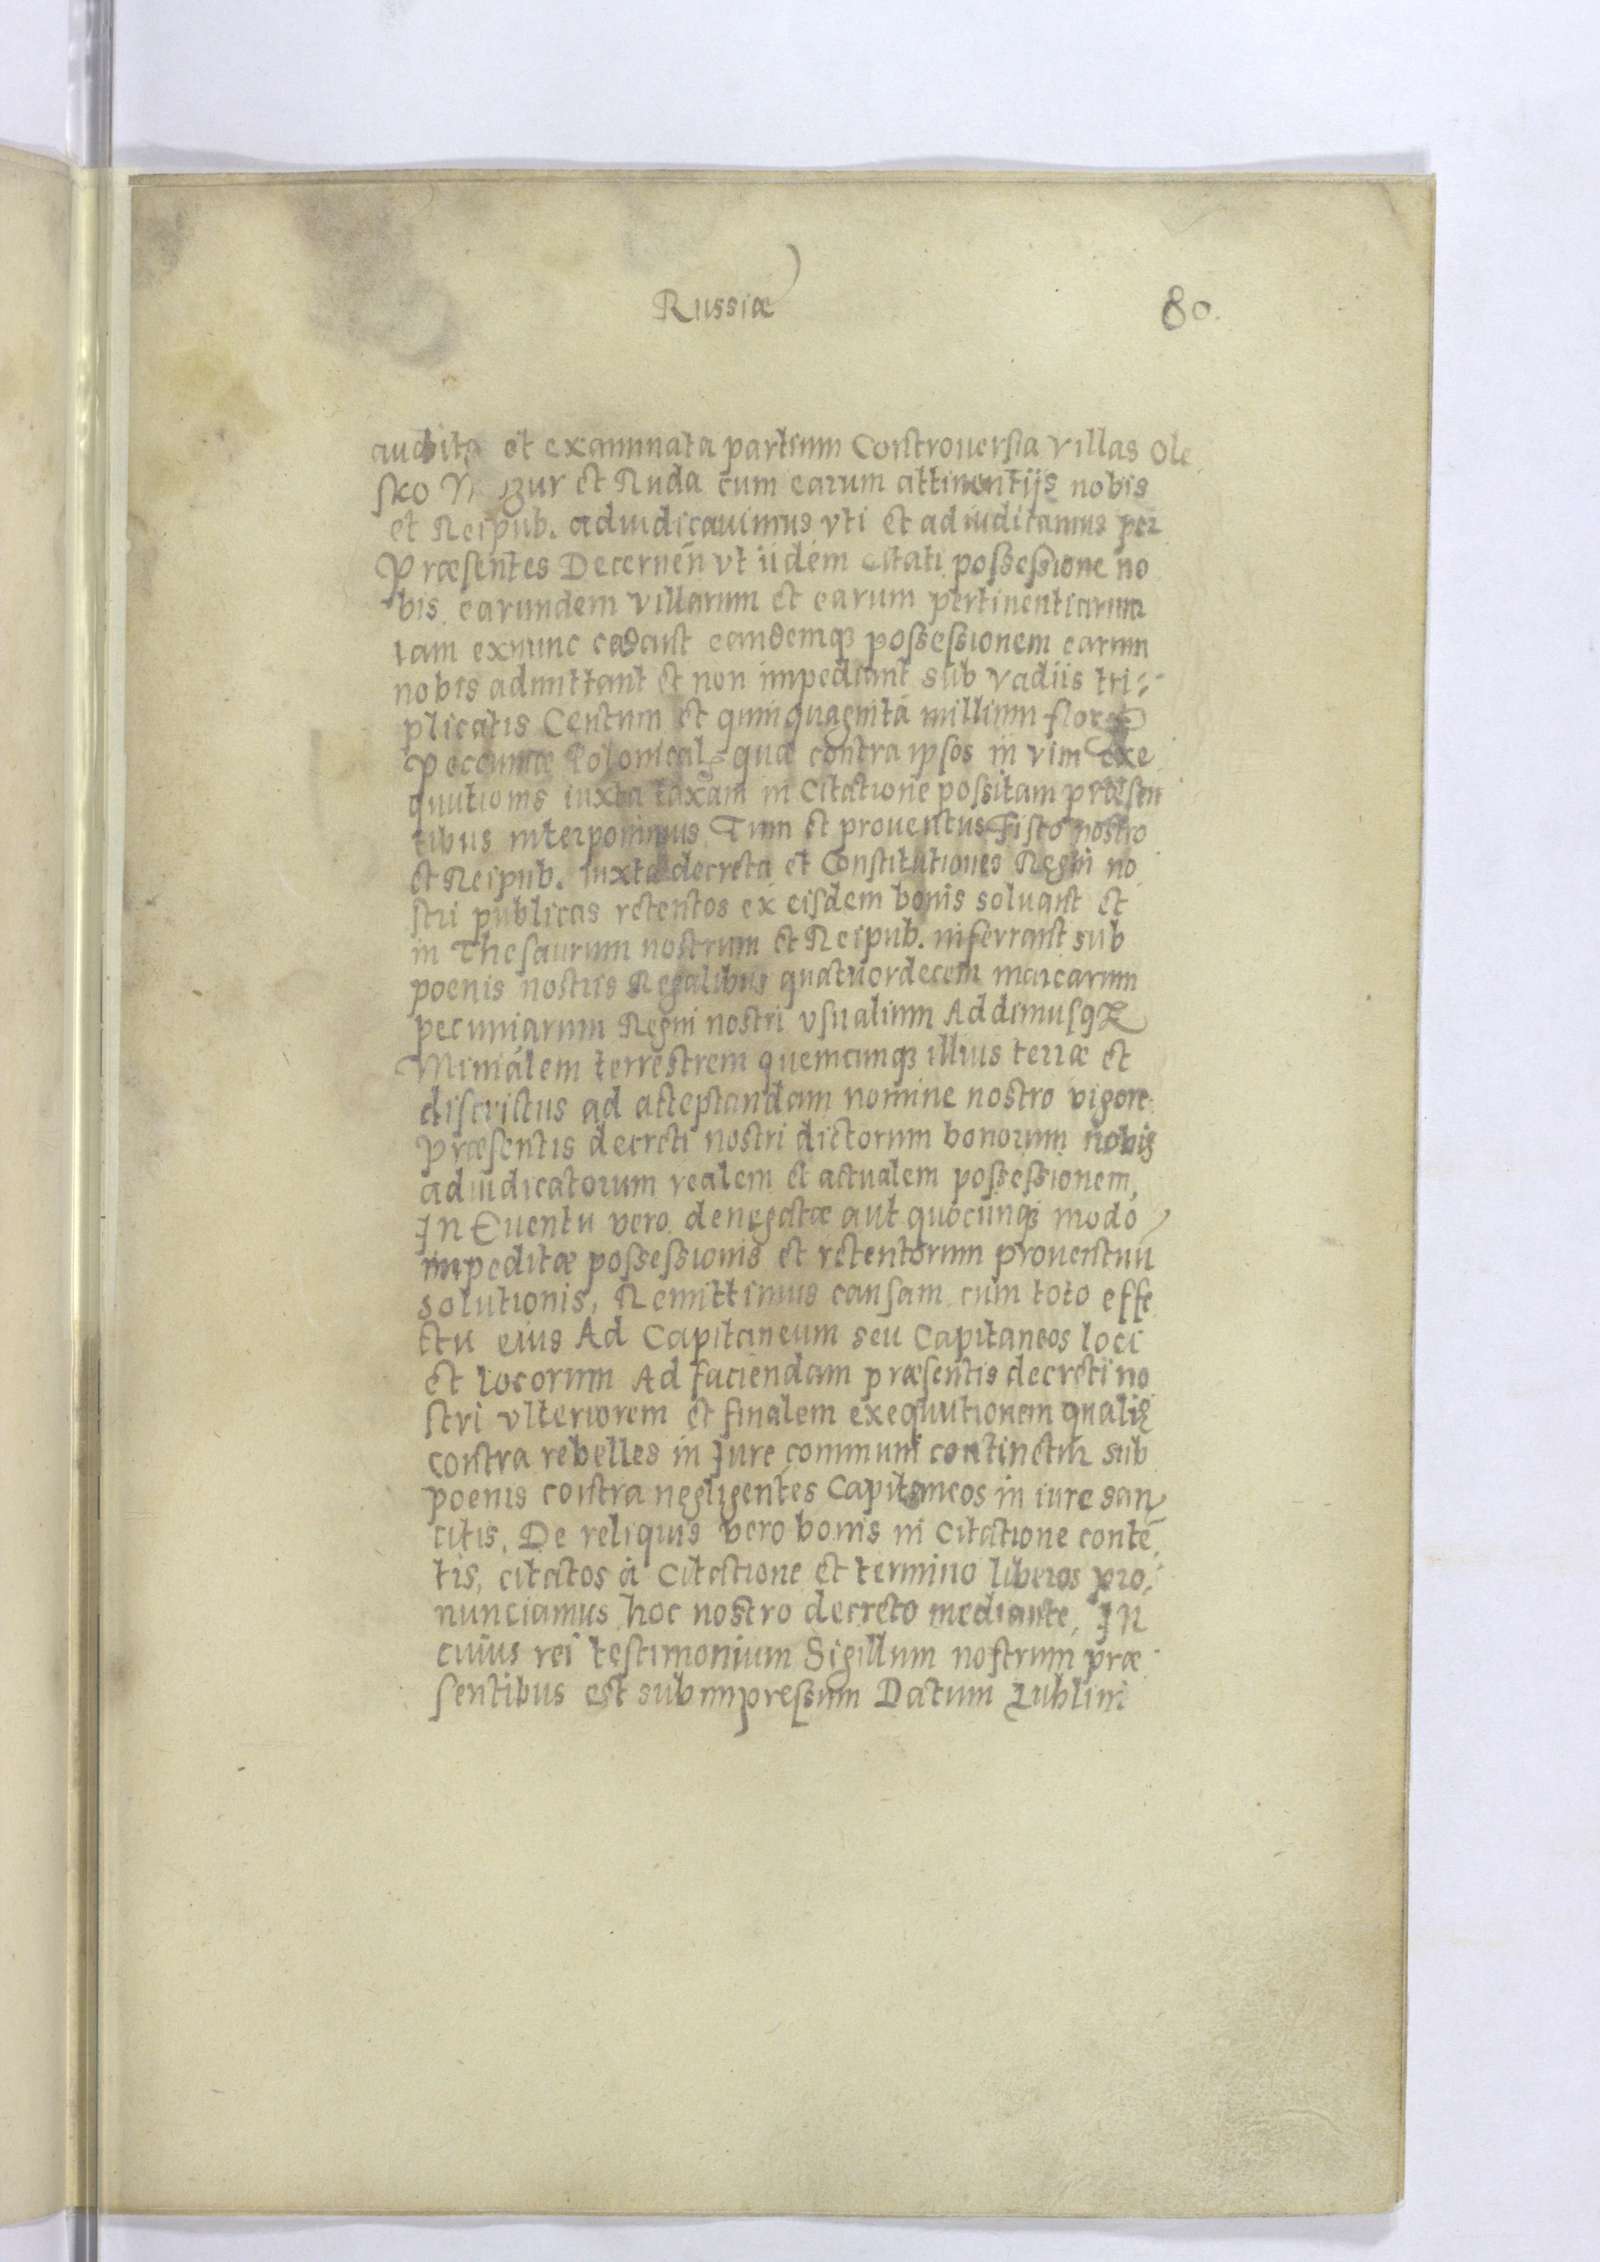 Russiæ
80.
audita et examinata partium Controuersia villas Ole
sko et Ruda cum earum attinentijs nobis
et Reipub. adiudicauimus vti et adiudicamus per
Præsentes Decerneñ vt iidem Citati possessione no
bis earundem villarum et earum pertinentiarum
iam exnunc cedant eandemq3 possessionem earum
nobis admittant et non impediant sub vadiis tri-
plicatis Centum et quinquaginta millium floren
Pecuniæ Polonical quæ contra ipsos in vim exe
quutionis iuxta taxam in Citatione possitam præsen
tibus interponimus. Tum et prouentus Fisco nostro
et Reipub. iuxta decreta et Constitutiones Regni no
stri publicas retentos ex eisdem bonis soluant et
in Thesaurum nostrum et Reipub. inferrant sub
poenis nostris Regalibus quatuordecem marcarum
pecuniarum Regni nostri vsualium Addimusq3
Minialem terrestrem quemcunq3 illius terræ et
districtus ad acceptandam nomine nostro vigore
præsentis decreti nostri dictorum bonorum nobis
adiudicatorum realem et actualem possessionem,
In Euentu vero denegatæ aut quocunq3 modo
impeditæ possessionis et retentorum prouentuu
solutionis, Remittimus causam cum toto effe
ctu eius Ad Capitaneum seu Capitaneos loci
et locorum Ad faciendam præsentis decreti no
stri vlteriorem et finalem exequutionem qualis
contra rebelles in Jure communi continetur sub
poenis contra negligentes Capitaneos in iure san
citis. De reliquis vero bonis in Citatione conte
tis, citatos á Citatione et termino liberos pro-
nunciamus hoc nostro decreto mediante, In
cuius rei testimonium Sigillum nostrum præ
sentibus est subimpressum Datum Lublini